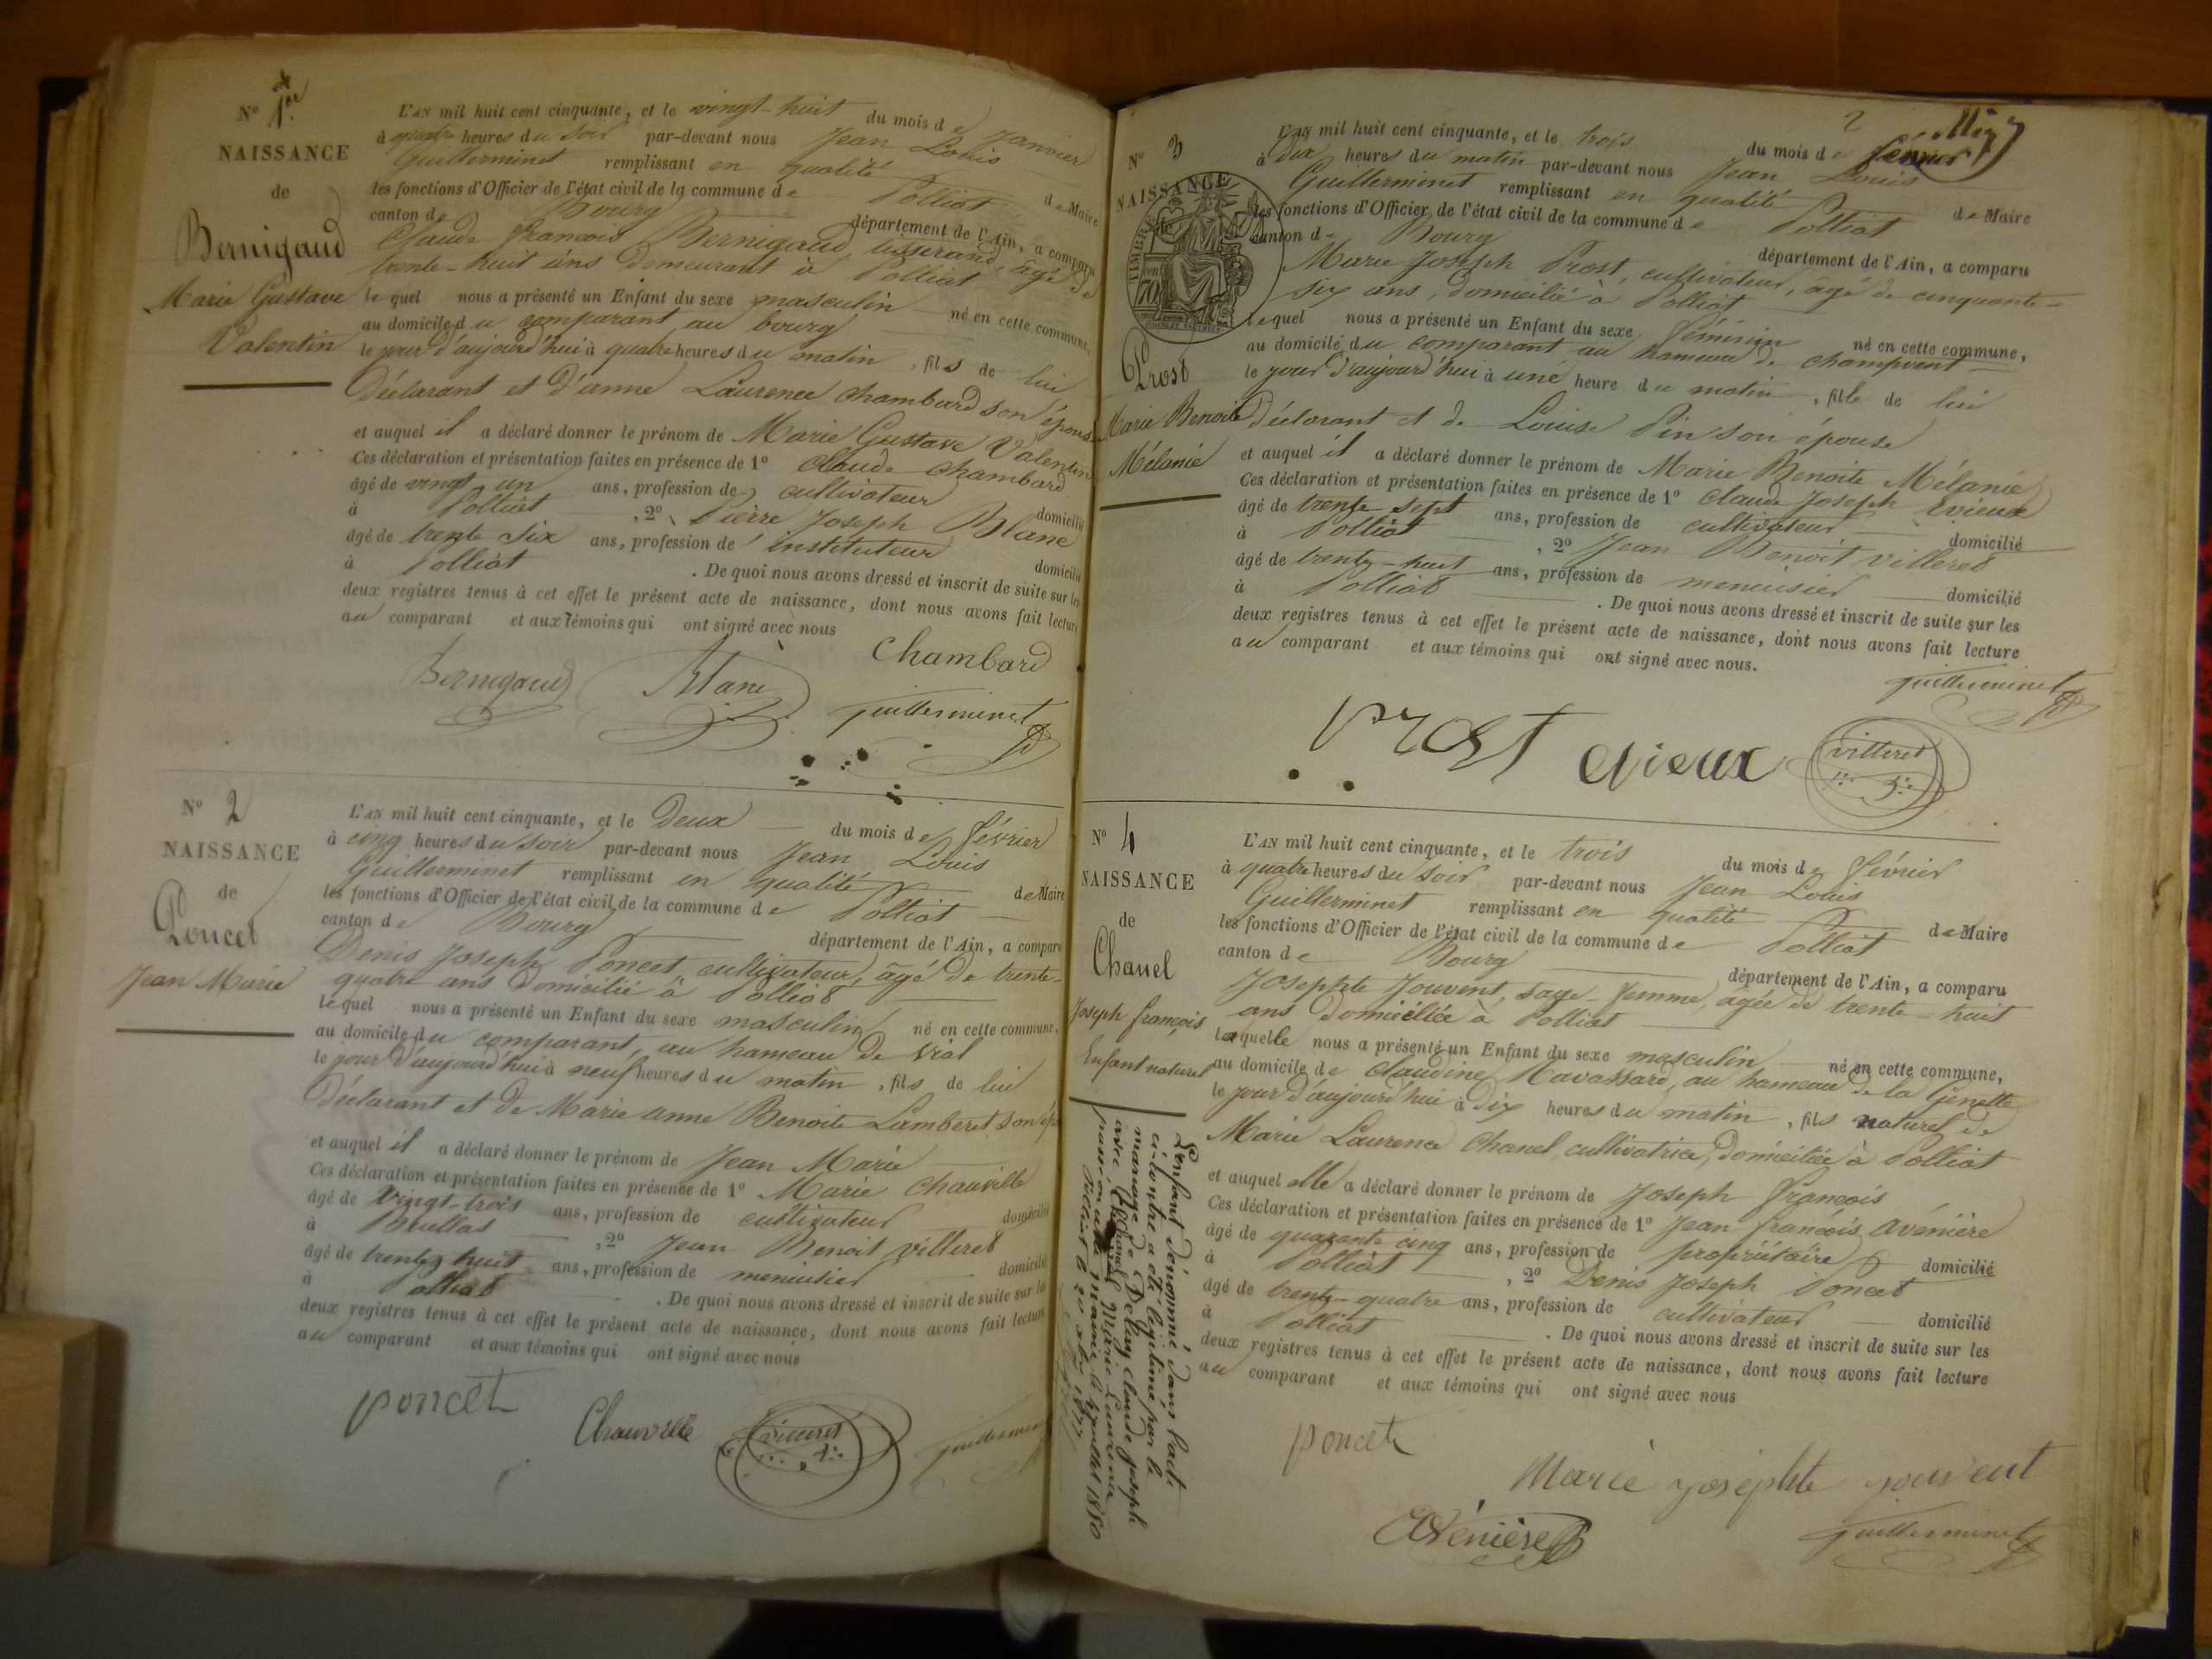 N° 1er
NAISSANCE
de
Bernigaud
Marie Gustave
Valentin
L'AN mil huit cent cinquante, et le vingt-huit du mois de Janvier
à quatre heures du soir par-devant nous Jean Louis
Guillerminet remplissant en qualité de Maire
les fonctions d'Officier de l'état civil de la commune de Polliat
canton de Bourg département de l'Ain, a comparu
Claude François Bernigaud, tisserand, âgé de
trente-huit ans demeurant à Polliat
lequel nous a présenté un Enfant du sexe masculin né en cette commune,
au domicile du comparant au bourg
le jour d'aujourd'hui à quatre heures du matin, fils de lui
Déclarant et d'anne Laurence Chambard son épouse
et auquel il a déclaré donner le prénom de Marie Gustave Valentin
Ces déclaration et présentation faites en présence de 1° Claude Chambard
âgé de vingt un ans, profession de cultivateur domicilié
à Polliat, 2° Pierre Joseph Blanc
âgé de trente six ans, profession de instituteur domicilié
à Polliat. De quoi nous avons dressé et inscrit de suite sur les
deux registres tenus à cet effet le présent acte de naissance, dont nous avons fait lecture
au comparant et aux témoins qui ont signé avec nous
Chambard
Bernigaud Blanc Guillerminet
N° 2
NAISSANCE
de
Poncet
Jean Marie
L'AN mil huit cent cinquante, et le Deux du mois de février
à cinq heures du soir par-devant nous Jean Louis
Guillerminet remplissant en qualité de Maire
les fonctions d'Officier de l'état civil de la commune de Polliat
canton de Bourg département de l'Ain, a comparu
Denis Joseph Poncet, cultivateur, âgé de trente-
quatre ans domicilié à Polliat
lequel nous a présenté un Enfant du sexe masculin né en cette commune,
au domicile du comparant, au hameau de Vial
le jour d'aujourd'hui à neuf heures du matin, fils de lui
Déclarant et de Marie anne Benoite Lamberet son
et auquel il a déclaré donner le prénom de Jean Marie
Ces déclaration et présentation faites en présence de 1° Marie Chauville
âgé de vingt-trois ans, profession de cultivateur domicilié
à, 2° Jean Benoit Villeret
âgé de trente huit ans, profession de menuisier domicilié
à Polliat. De quoi nous avons dressé et inscrit de suite sur les
deux registres tenus à cet effet le présent acte de naissance, dont nous avons fait lecture
au comparant et aux témoins qui ont signé avec nous
poncet Chauville villeret Guillerminet
2
N° 3
NAISSANCE
de
TIMBRE
70
Prost
Marie Benoite
Mélanie
L'AN mil huit cent cinquante, et le trois du mois de février
à dix heures du matin par-devant nous Jean Louis
Guillerminet remplissant en qualité de Maire
les fonctions d'Officier de l'état civil de la commune de Polliat
canton de Bourg département de l'Ain, a comparu
Marie Joseph Prost, cultivateur, âgé de cinquante-
six ans, domicilié à Polliat
lequel nous a présenté un Enfant du sexe féminin né en cette commune,
au domicile du comparant au hameau de champvent
le jour d'aujourd'hui à une heure du matin, fille de lui
déclarant et de Louise Pin son épouse
et auquel il a déclaré donner le prénom de Marie Benoite Mélanie
Ces déclaration et présentation faites en présence de 1° Claude Joseph Evieux
âgé de trente sept ans, profession de cultivateur domicilié
à Polliat, 2° Jean Benoit Villeret
âgé de trente-huit ans, profession de menuisier domicilié
à Polliat. De quoi nous avons dressé et inscrit de suite sur les
deux registres tenus à cet effet le présent acte de naissance, dont nous avons fait lecture
au comparant et aux témoins qui ont signé avec nous.
Guillerminet
prost evieux villeret
N° 4
NAISSANCE
de
Chanel
Joseph françois
Enfant naturel
L'enfant dénommé dans l'acte
ci-contre a été légitimé par le
mariage de Delay Claude Joseph
avec Chanel Marie Laurence
L'AN mil huit cent cinquante, et le trois du mois de février
à quatre heures du soir par-devant nous Jean Louis
Guillerminet remplissant en qualité de Maire
les fonctions d'Officier de l'état civil de la commune de Polliat
canton de Bourg département de l'Ain, a comparu
Josephte Jouvent, sage-femme, âgée de trente-huit
ans domiciliée à Polliat
laquelle nous a présenté un Enfant du sexe masculin né en cette commune,
au domicile de Claudine Navassard, au hameau de la Genette
le jour d'aujourd'hui à dix heures du matin, fils naturel de
Marie Laurence Chanel, cultivatrice, domiciliée à Polliat
et auquel elle a déclaré donner le prénom de Joseph François
Ces déclaration et présentation faites en présence de 1° Jean françois Avénière
âgé de quarante cinq ans, profession de propriétaire domicilié
à Polliat, 2° Denis Joseph Poncet
âgé de trente-quatre ans, profession de cultivateur domicilié
à Polliat. De quoi nous avons dressé et inscrit de suite sur les
deux registres tenus à cet effet le présent acte de naissance, dont nous avons fait lecture
au comparant et aux témoins qui ont signé avec nous
poncet
Marie josephte jouvent
Avénière Guillerminet